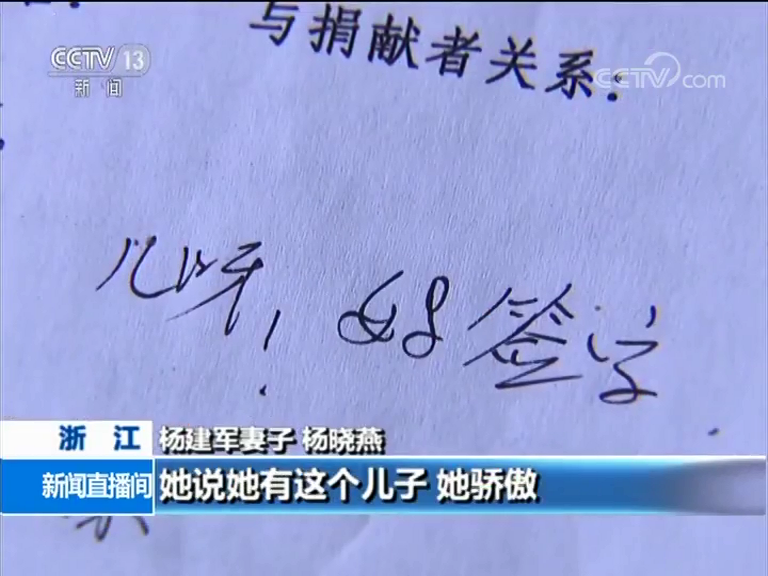 与捐献者关系:
CCTV 13
新闻
CCTV.com
儿呀! 妈签字
浙江
杨建军妻子 杨晓燕
新闻直播间
她说她有这个儿子 她骄傲